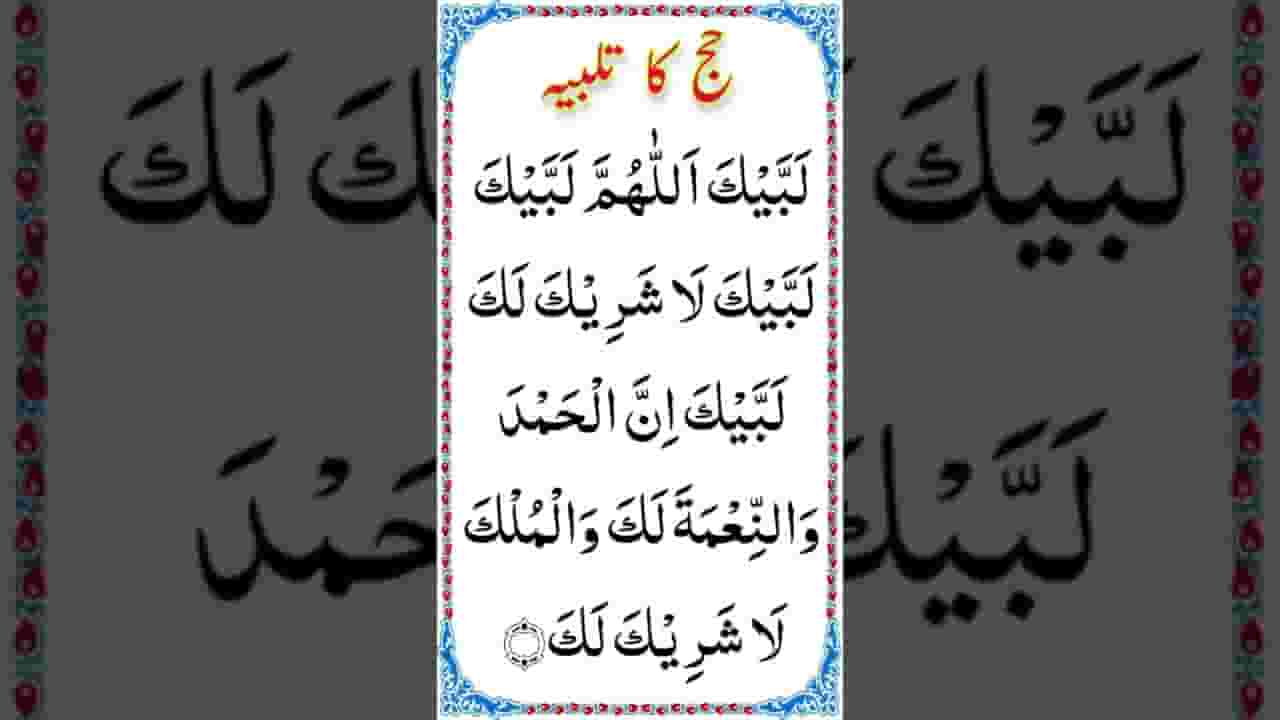 حج کا تلبیہ
لَبَّيْكَ اَللّٰهُمَّ لَبَّيْكَ
لَبَّيْكَ لَا شَرِيْكَ لَكَ
لَبَّيْكَ اِنَّ الْحَمْدَ
وَالنِّعْمَةَ لَكَ وَالْمُلْكَ
لَا شَرِيْكَ لَكَ